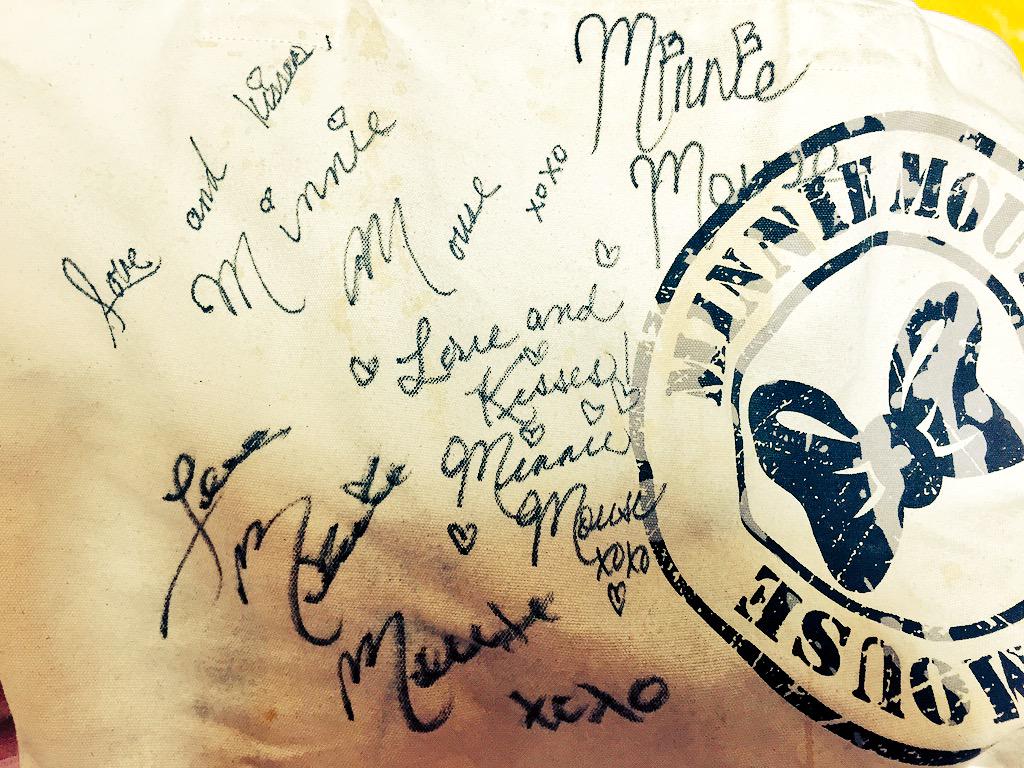 Love and kisses,
Minnie
Mouse
xoxo
Minnie
Mouse
Love and
Kisses!
Minnie
Mouse
xoxo
Love
Minnie
Mouse
xoxo
MINNIE MOU
MOUSE